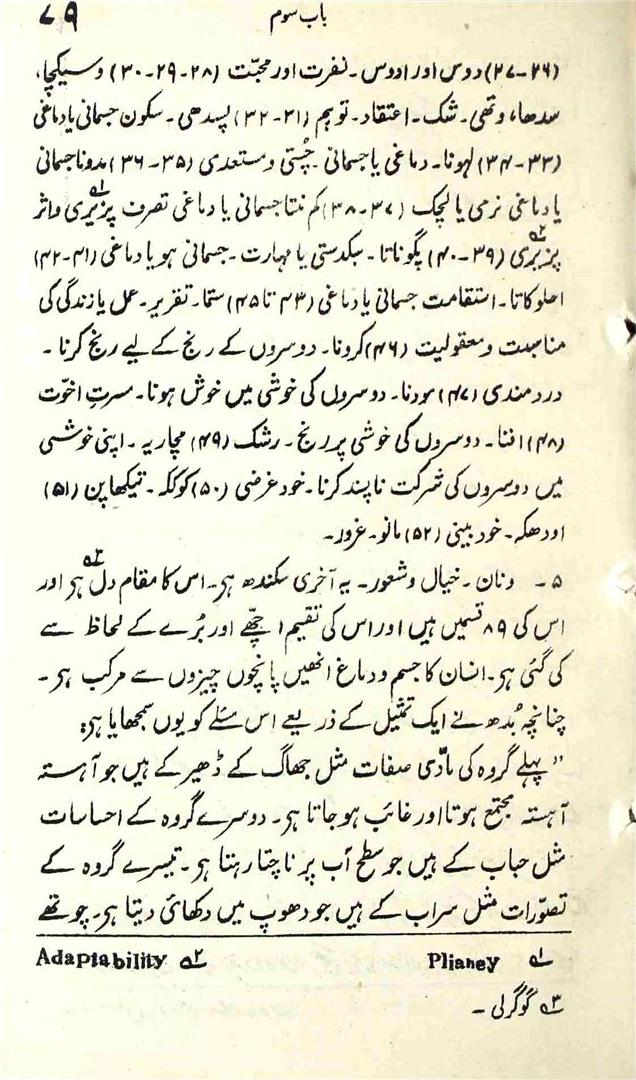 باب سوم ۷۹
(۲۶-۲۷) دوس اور اودس۔ نفرت اور محبّت (۲۸-۲۹-۳۰) وسیکچا،
سدھا، وتھی۔ شک۔ اعتقاد۔ توہم (۳۱-۳۲) پسدھی۔ سکون جسمانی یا دماغی
(۳۳-۳۴) لہوتا۔ دماغی یا جسمانی۔ چُستی و مستعدی (۳۵-۳۶) مدوتا جسمانی
یا دماغی نرمی یا لچک (۳۷-۳۸) کم نتا جسمانی یا دماغی تصرف پزیری ؎۱ واثر
پزیری ؎۲ (۳۹-۴۰) پگوناتا۔ سبکدستی یا مہارت۔ جسمانی ہو یا دماغی (۴۱-۴۲)
اجلوکاتا۔ استقامت جسمانی یا دماغی (۴۳ تا ۴۵) ستما۔ تقریر۔ عمل یا زندگی کی
مناسبت و معقولیت (۴۶) کرونا۔ دوسروں کے رنج کے لیے رنج کرنا۔
درد مندی (۴۷) مودنا۔ دوسروں کی خوشی میں خوش ہونا۔ مسرتِ اخوّت
(۴۸) افنا۔ دوسروں کی خوشی پر رنج۔ رشک (۴۹) مچاریہ۔ اپنی خوشی
میں دوسروں کی شرکت نا پسند کرنا۔ خود غرضی (۵۰) کوککہ۔ تیکھا پن (۵۱)
اودھکہ۔ خود بینی (۵۲) مانو۔ غرور۔
۵ - ونان۔ خیال و شعور۔ یہ آخری سکندھ ہر۔ اس کا مقام دل ؎۳ ہر اور
اس کی ۸۹ قسمیں ہیں اور اس کی تقیم اچھّے اور بُرے کے لحاظ سے
کی گئی ہر۔ انسان کا جسم و دماغ انھیں پانچوں چیزوں سے مرکب ہر۔
چنانچہ بُدھ نے ایک تمثیل کے ذریعے اس مسئلے کو یوں سمجھایا ہر:
"پہلے گروہ کی مادّی صفات مثل جھاگ کے ڈھیر کے ہیں جو آہستہ
آہستہ مجتمع ہوتا اور غائب ہو جاتا ہر۔ دوسرے گروہ کے احساسات
مثل حباب کے ہیں جو سطح آب پر ناچتا رہتا ہر۔ تیسرے گروہ کے
تصوّرات مثل سراب کے ہیں جو دھوپ میں دکھائی دیتا ہر۔ چوتھے
؎۱ Plianey ؎۲ Adaptability
؎۳ گوگرلی۔